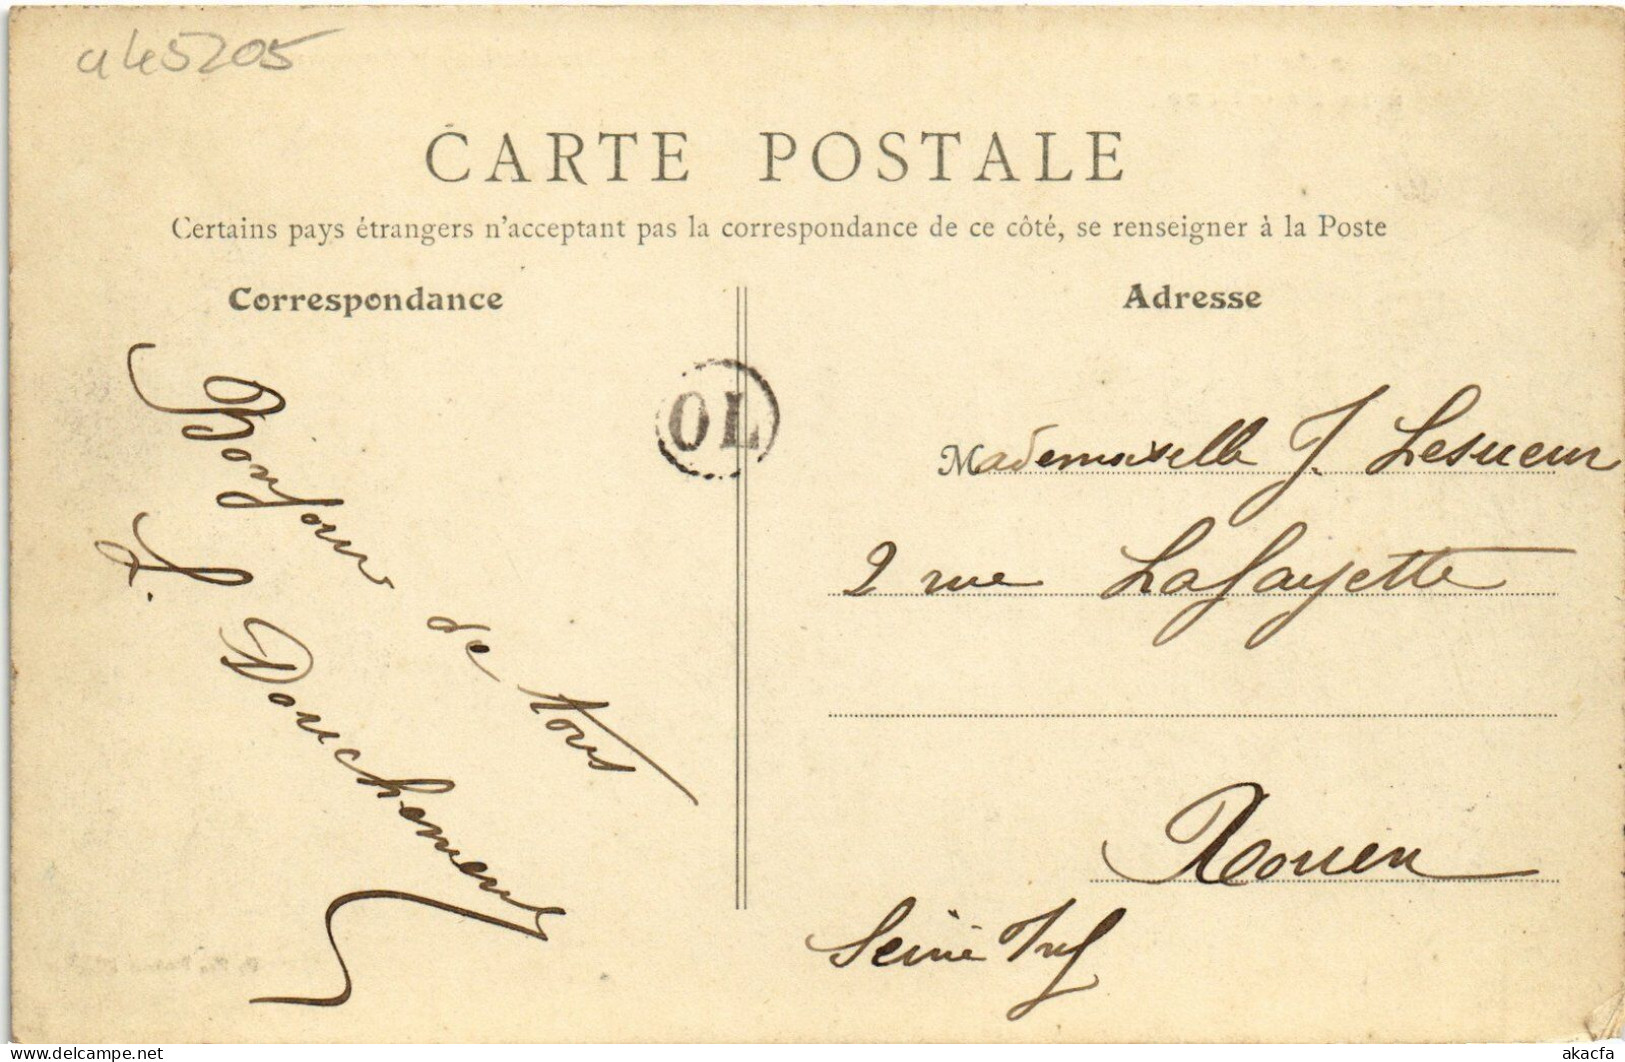 a45205
CARTE POSTALE
Certains pays étrangers n'acceptant pas la correspondance de ce côté, se renseigner à la Poste
Correspondance
Adresse
OL
Bonjour de tous
L. Douchement
Mademoiselle J. Lesueur
2 rue Lafayette
Rouen
Seine Inf
www.delcampe.net
akacfa